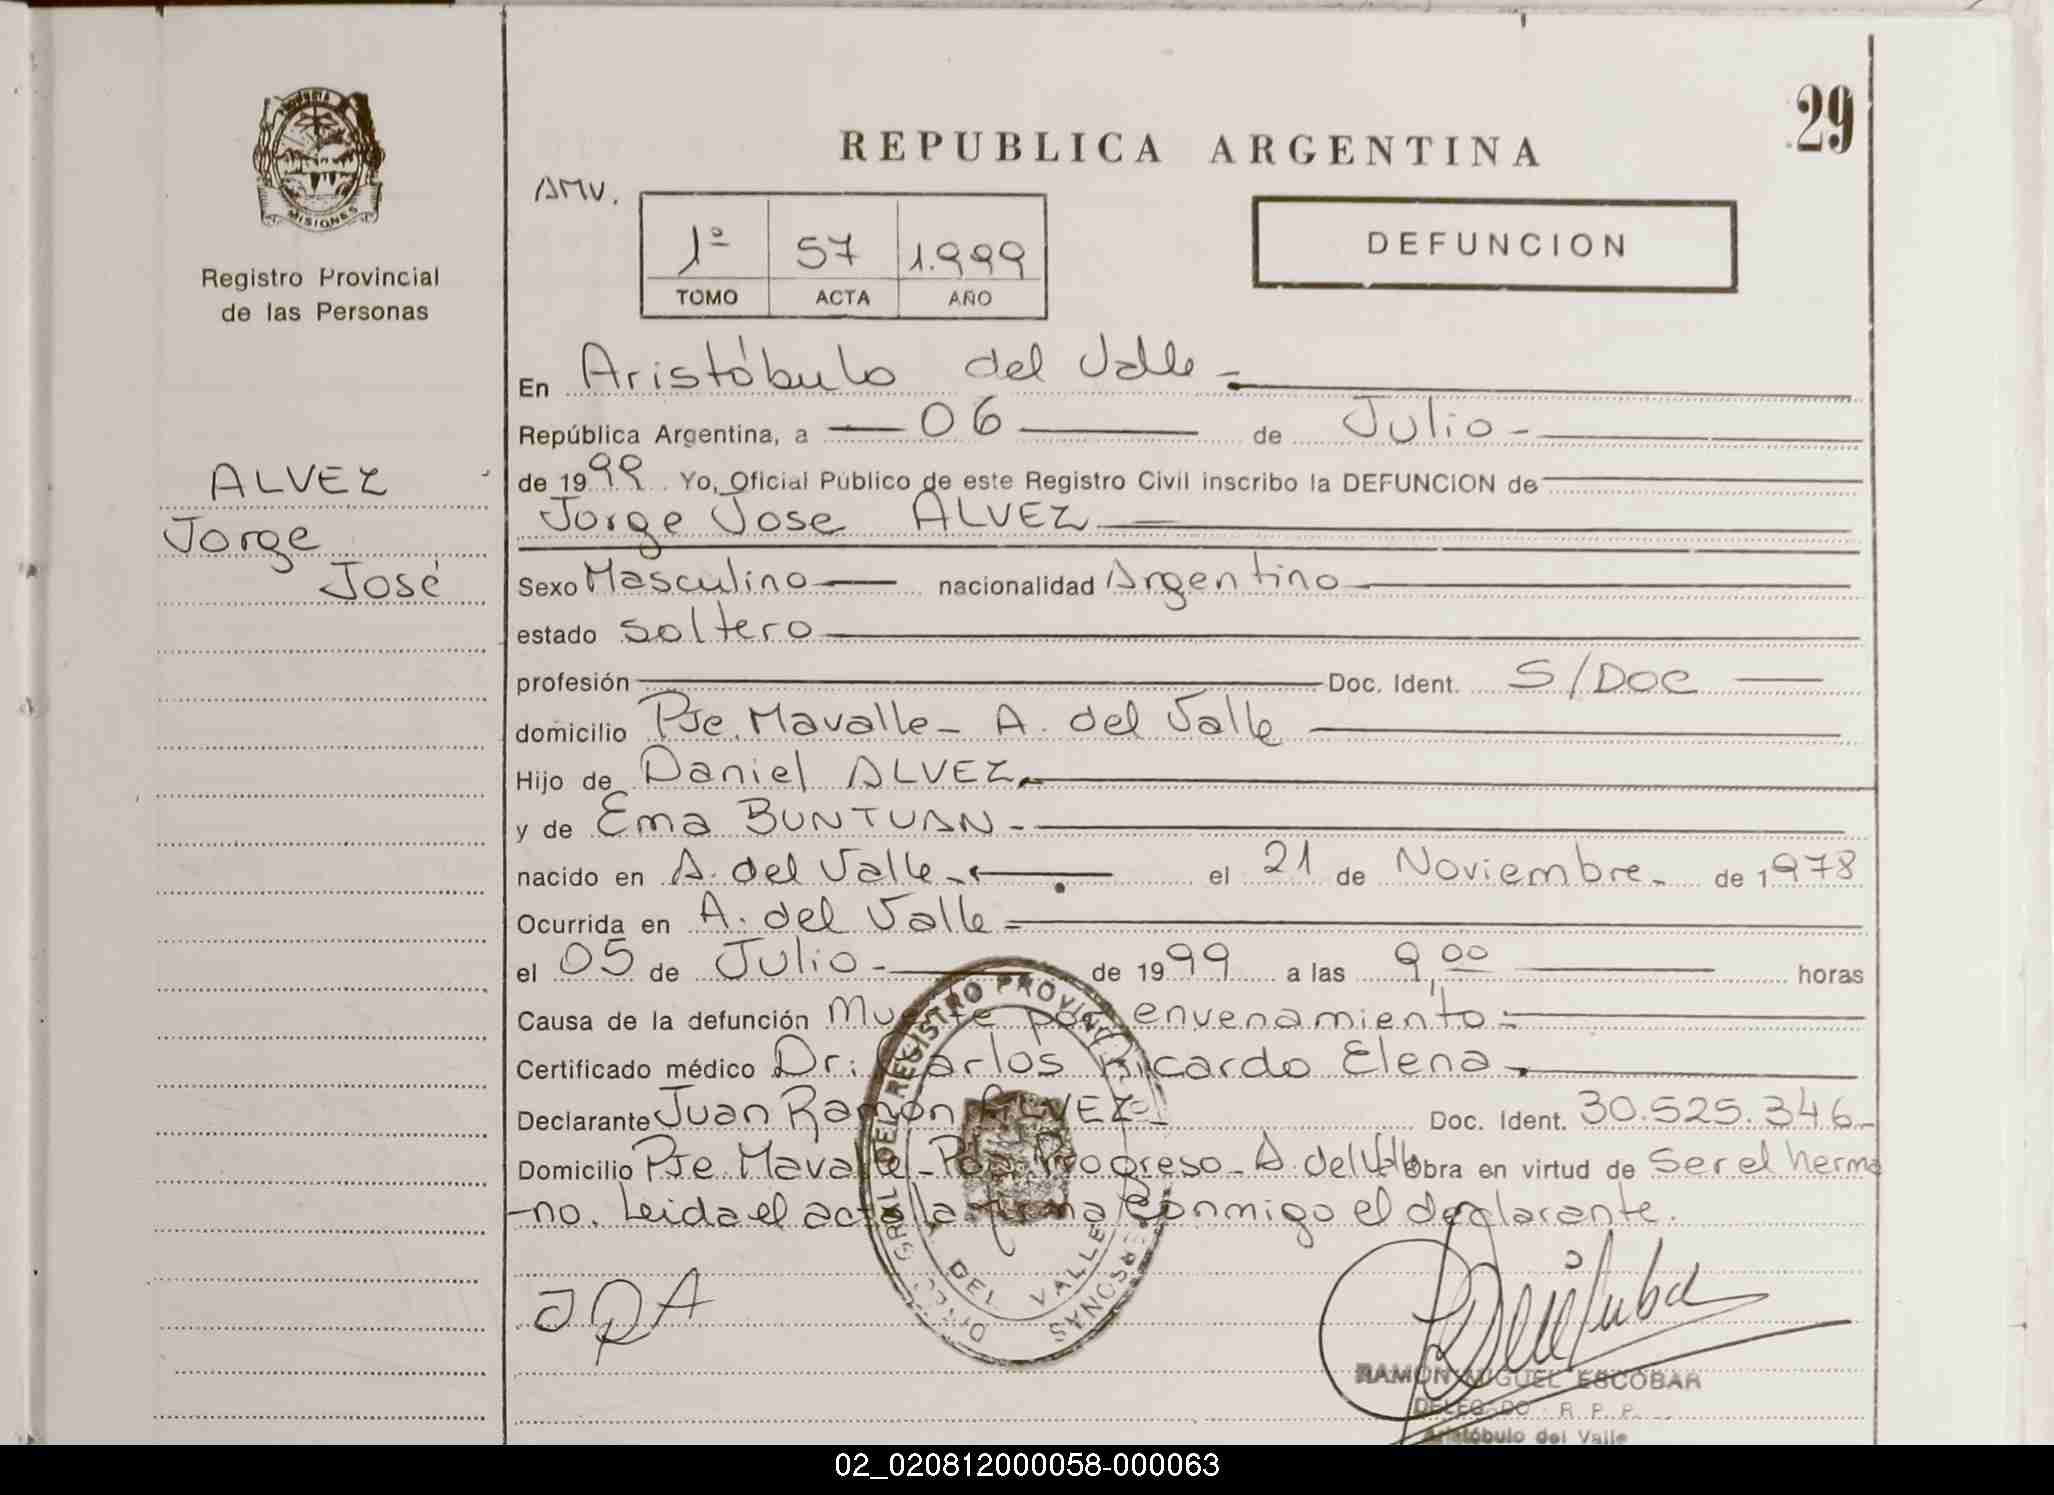 29
REPUBLICA ARGENTINA
AMV.
1º 57 1.999
TOMO ACTA AÑO
DEFUNCION
MISIONES
Registro Provincial
de las Personas
ALVEZ
Jorge
José
En Aristóbulo del Valle -
República Argentina, a 06 de Julio -
de 1999 Yo, Oficial Público de este Registro Civil inscribo la DEFUNCION de
Jorge Jose ALVEZ
Sexo Masculino nacionalidad Argentino
estado soltero
profesión Doc. Ident. S/DOC
domicilio Pje. Mavalle - A. del Valle
Hijo de Daniel ALVEZ.
y de Ema BUNTUAN -
nacido en A. del Valle - el 21 de Noviembre - de 1978
Ocurrida en A. del Valle -
el 05 de Julio - de 1999 a las 9,00 horas
Causa de la defunción Muerte por envenamiento -
Certificado médico Dr: Carlos Ricardo Elena -
Declarante Juan Ramón ALVEZ - Doc. Ident. 30.525.346-
Domicilio Pje. Mavalle - Pdo Progreso - A. del Valle obra en virtud de Ser el herma
-no. Leida el acta la firma conmigo el declarante.
DIREC. GRAL. DEL REGISTRO PROVINCIAL PERSONAS
A. DEL VALLE
JRA
RAMON MIGUEL ESCOBAR
DELEGADO R. P. P.
Aristóbulo del Valle
02_020812000058-000063